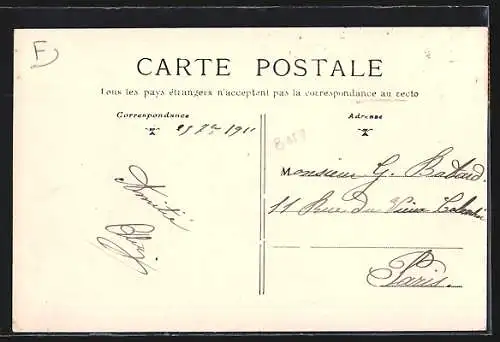 F
CARTE POSTALE
Tous les pays étrangers n'acceptent pas la correspondance au recto
Correspondance
Adresse
25 7bre 1911
Monsieur G. Badard.
11 Rue du Vieux Colombier
Paris.
Amitié